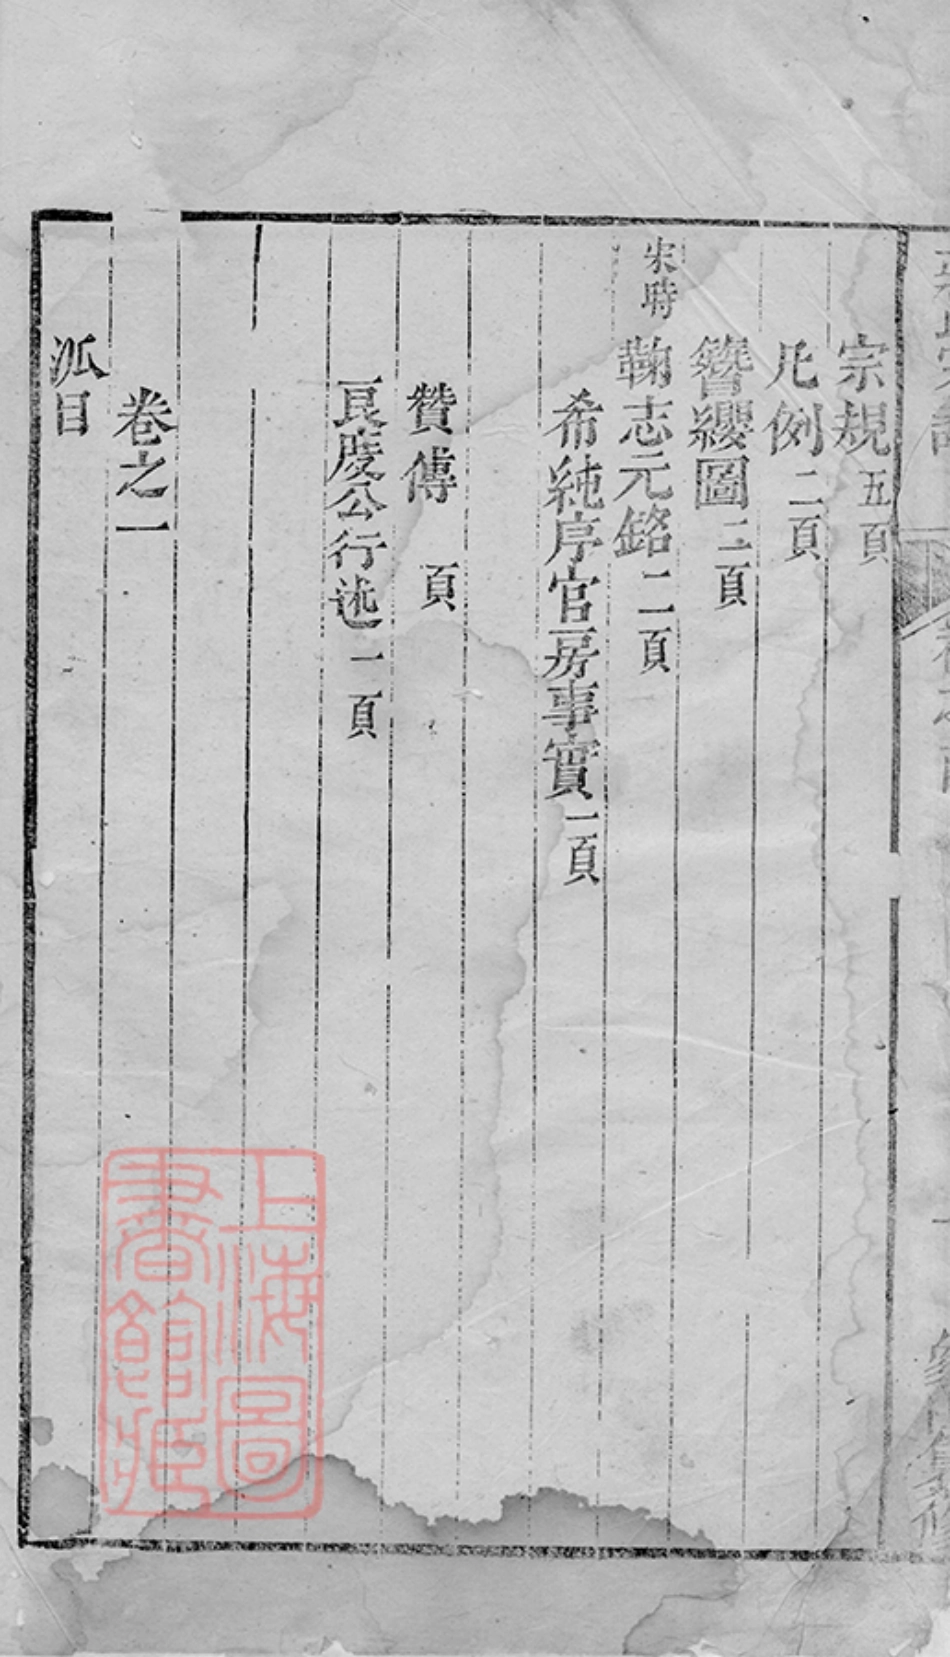 宗規五頁
凡例二頁
簪纓圖二頁
宋時 鞠志元銘二頁
希純序官房事實一頁
贊傳 頁
良度公行述一頁
卷之一
派目
上海圖書館藏